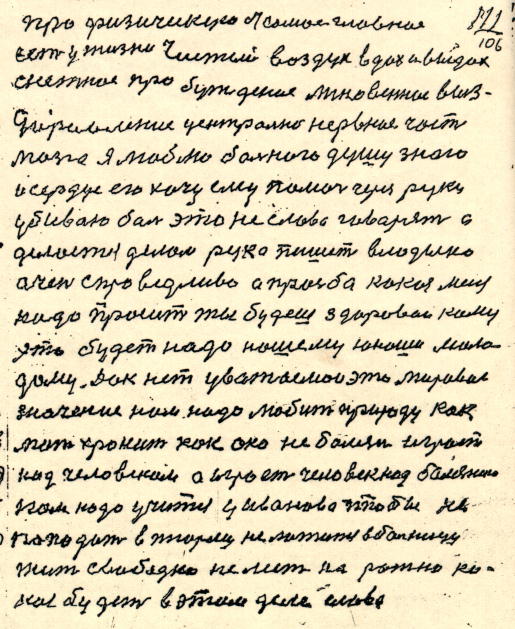 про физическую А самое главное 111
ест у жизни Чистый воздух вдох и выдох 106
снежное про буждение мновенное выз-
доровление централно нервное част
мозга Я люблю болного душу знаю
и сердце его хочу ему помоч чуез руки
убиваю бол это не слова говарят а
делоется делом рука пишет владыко
очен справедливо а прозба какоя меня
надо Просит ты будеш здоровой кому
это будет надо нашему юноши мола-
дому. Док нет уважаемои это мировое
значение нам надо любит природу как
мат хранит как око не болезн играет
над человеком а играет человек над болезнею
Нам надо учится у иванова чтобы не
попадат в тюрму не ложится в болницу
жит свободно не лест на рожно ка-
кое будет в этом деле слова